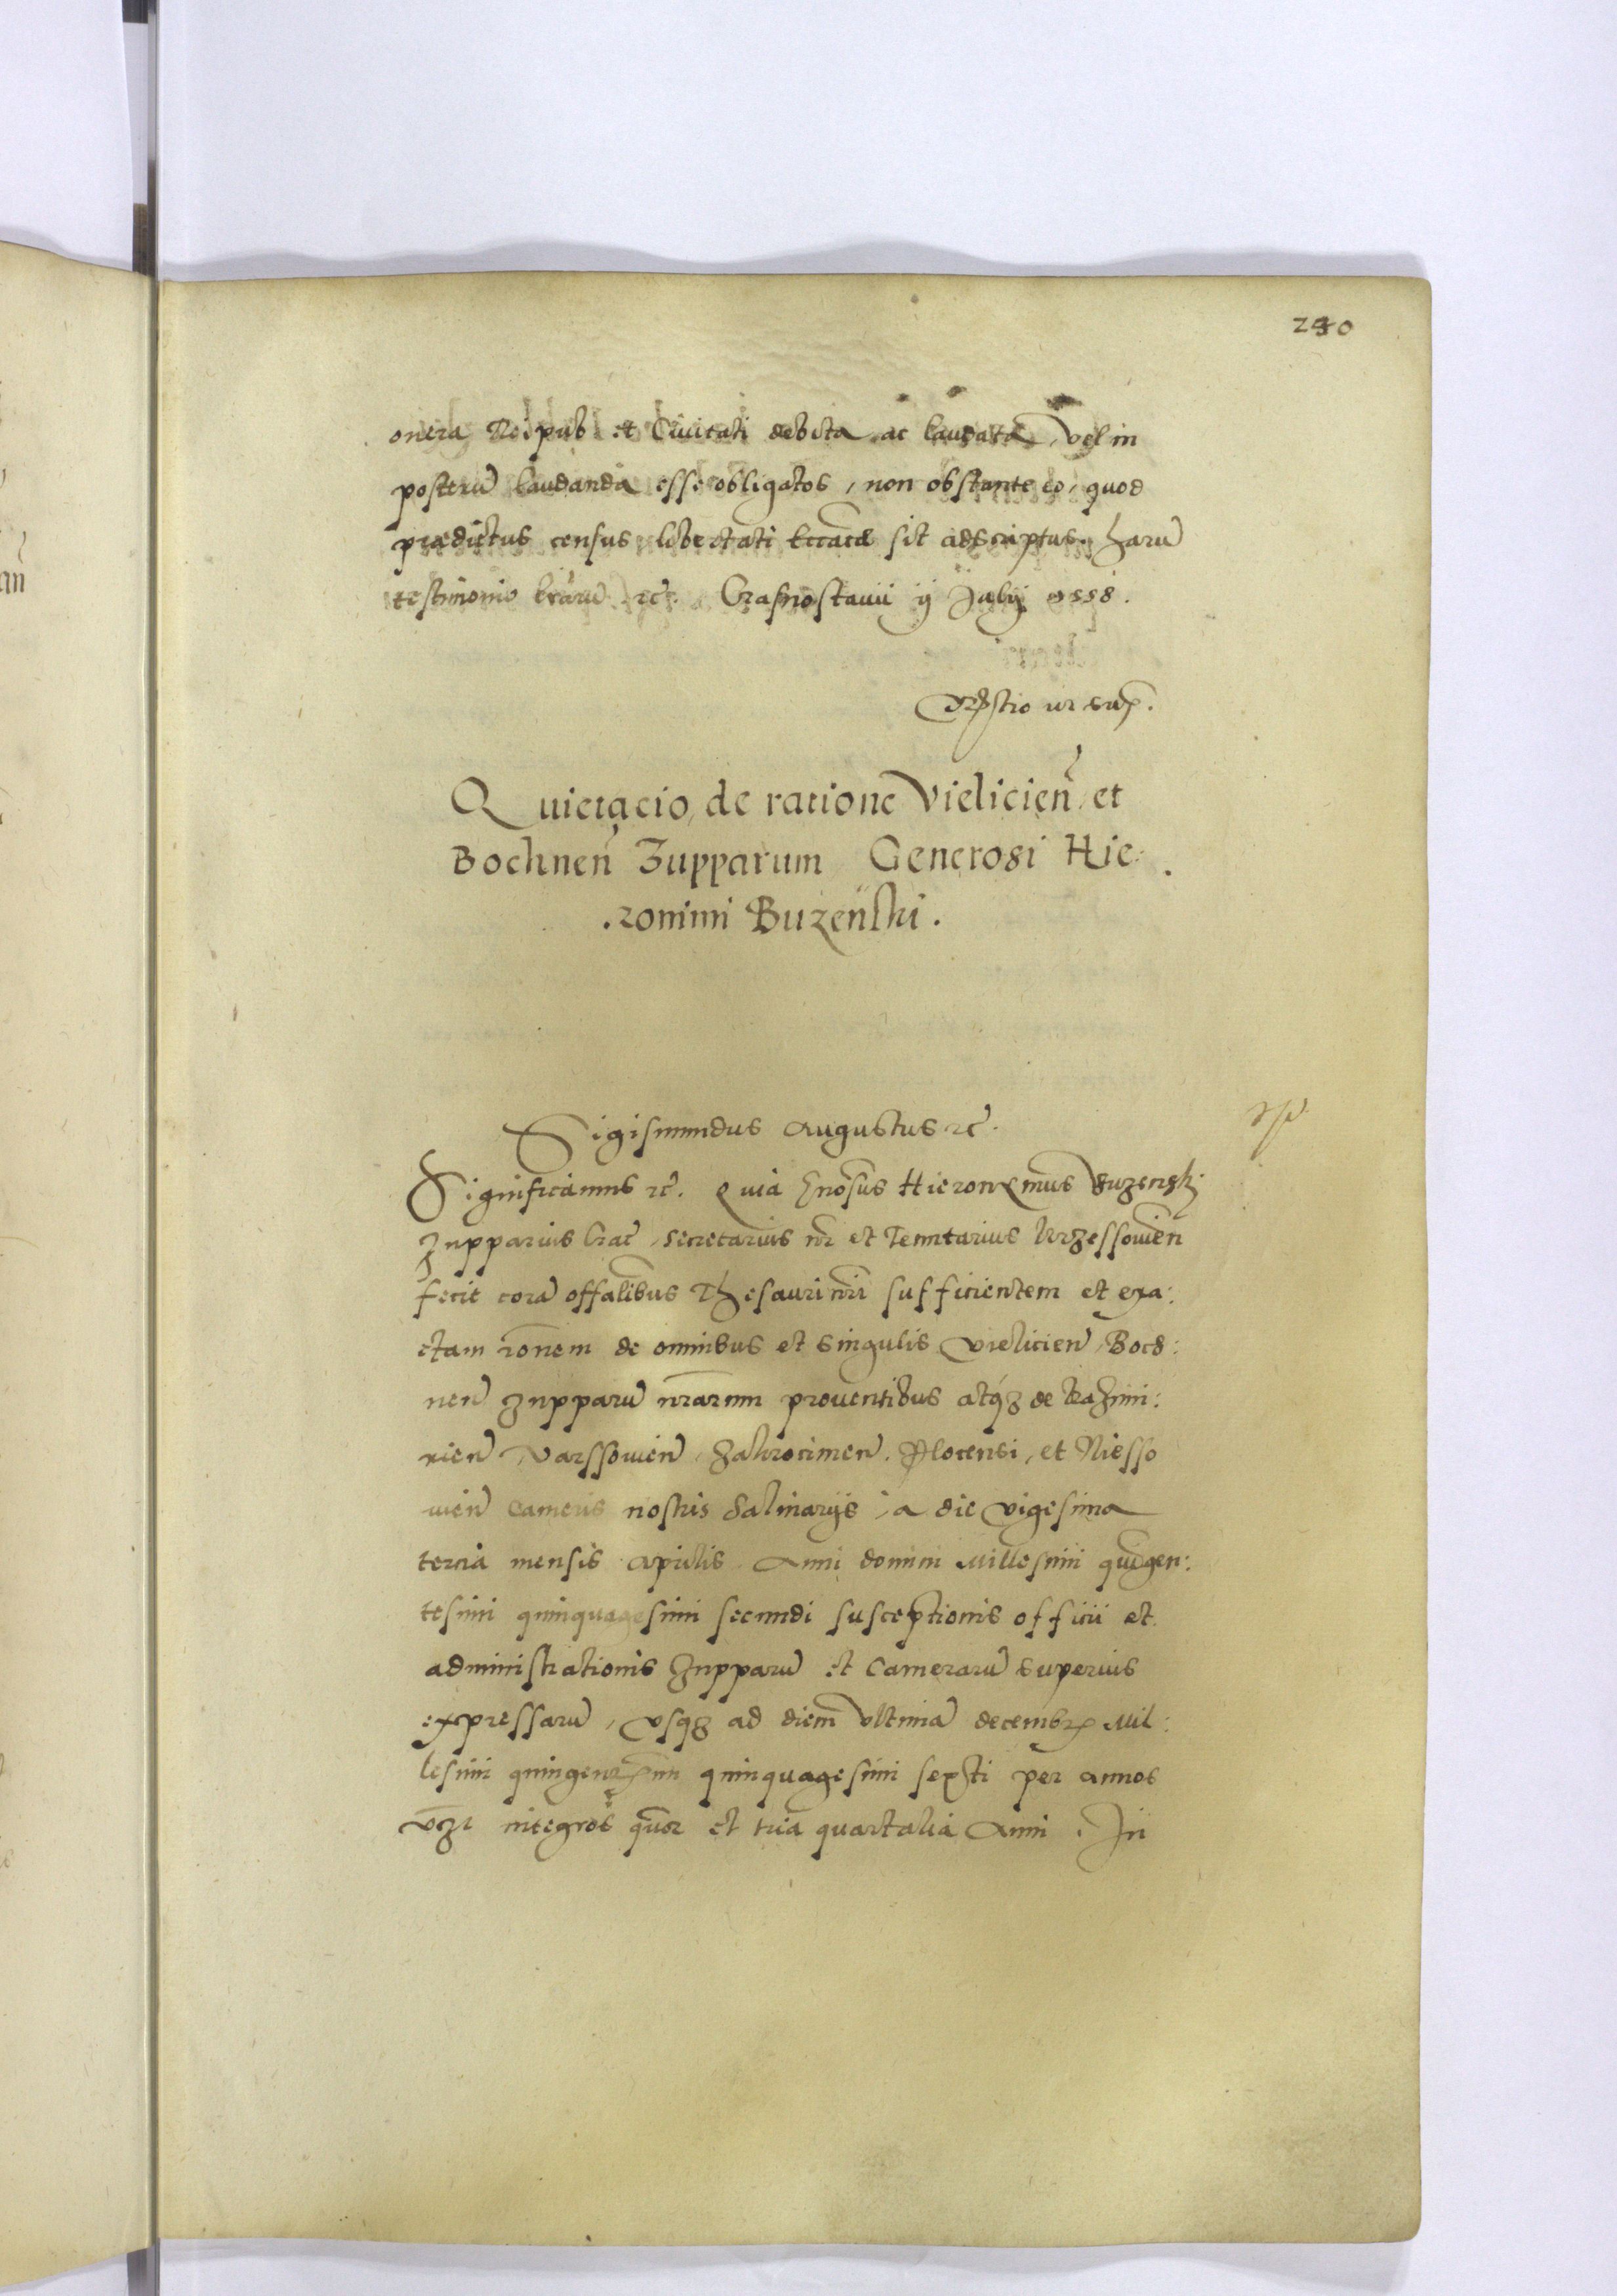 240
onera Reipub et Civitati debita ac laudata, vel in
posterū laudanda esse obligatos, non obstante eo, quod
prædictus census libertati Eccᷓticæ sit adscriptus. Harū
testimonio lrārū etc. Crasnostavii ij Julij 1558.
Relatio ut supᷓ.
Quietacio de ratione Vielicien̄ et
Bochnen̄ Zupparum Generosi Hie:
ronimi Buzenski.
Sigismundus Augustus etc.
Significamus etc. Quia Gnōsus Hieronymus Buzenski
Zupparius Crac̄, Secretarius nr̄ et Tenutarius Brzessovien̄
fecit corā offalibus Thesauri nrī sufficientem et exa:
ctam rōnem de omnibus et singulis Vielicien̄, Boch:
nen̄ Zupparū nrārum proventibus atqz de Kazimi:
rien̄, Varssovien̄, Zakrocimen̄. Plocensi, et Niesso
vien̄ Cameris nostris Salinarijs, a die vigesima
tercia mensis Aprilis Anni domini Millesimi quīgen:
tesimi quinquagesimi secundi susceptionis officii et
administrationis Zupparū et Camerarū superius
expressarū, usqz ad diem ultimā decembr̄ Mil:
lesimi quingentesimi quinquagesimi sexti per annos
vz̄t integros quor̄ et tria quartalia Anni. In